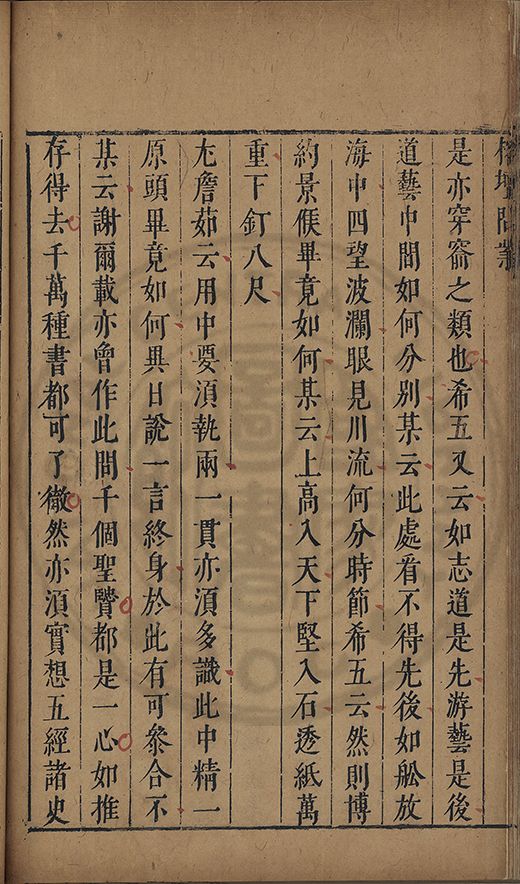 榕壇問業
是亦穿窬之類也希五又云如志道是先游藝是後
道藝中間如何分別某云此處看不得先後如舩放
海中四望波瀾眼見川流何分時節希五云然則博
約景候畢竟如何某云上高入天下堅入石透紙萬
重下釘八尺
尤詹茹云用中要湏執兩一貫亦湏多識此中精一
原頭畢竟如何異日說一言終身於此有可叅合不
某云謝爾載亦曾作此問千個聖賢都是一心如推
存得去千萬種書都可了徹然亦湏實想五經諸史